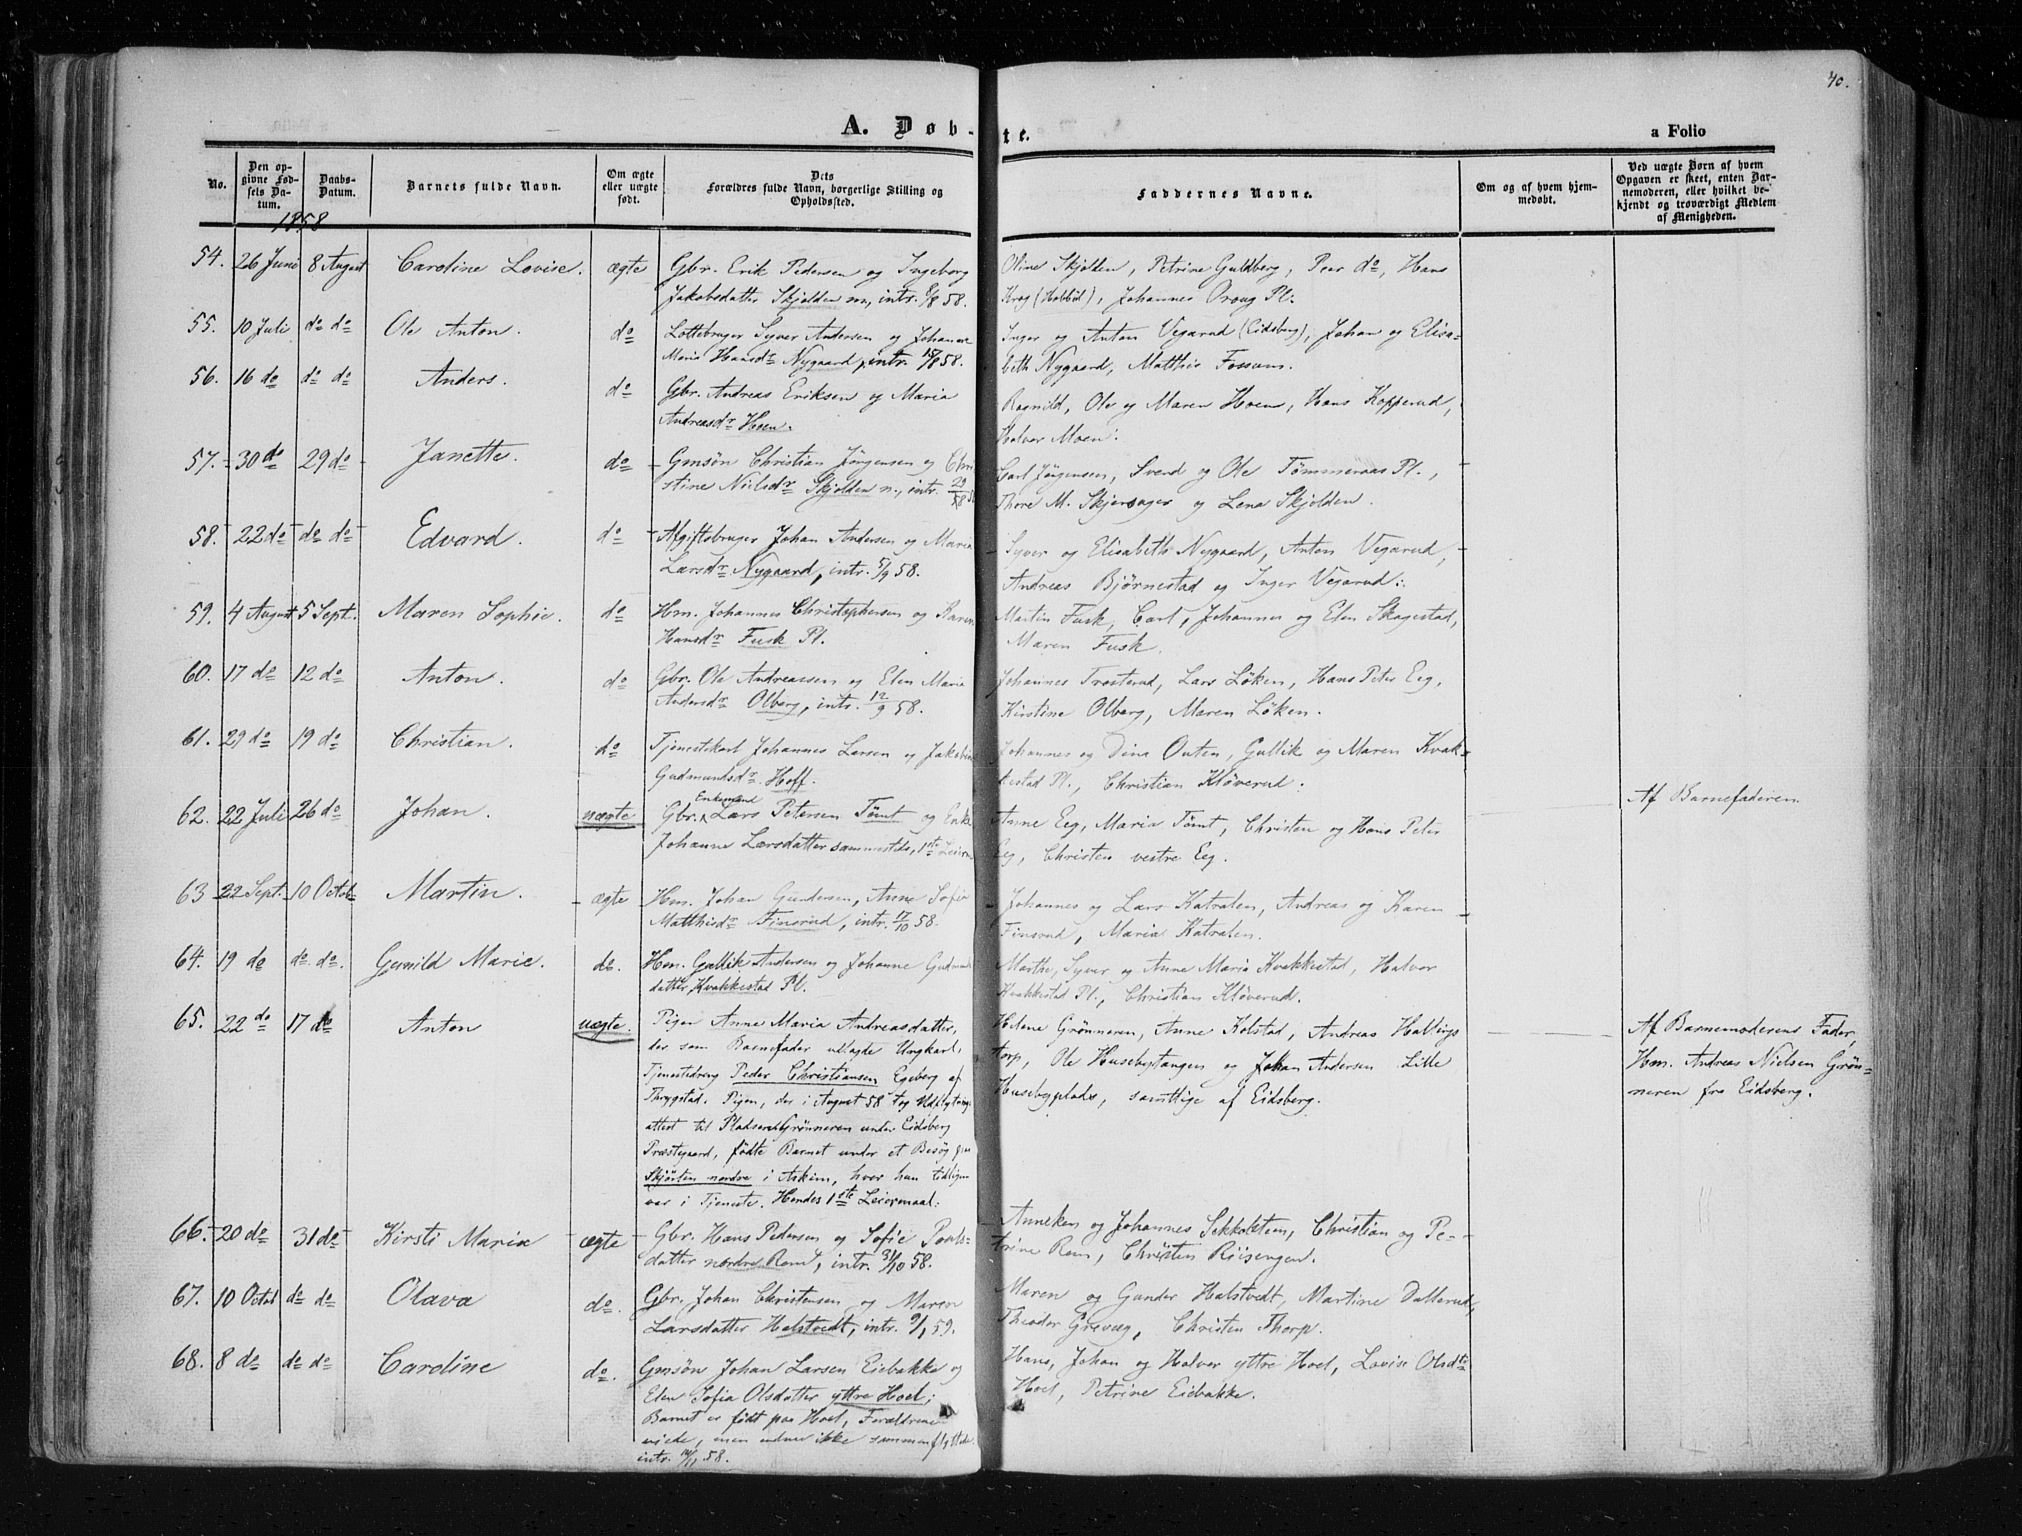 40.
A. Døb-te.
a Folio
No.
Den op-
givne Fød-
sels Da-
tum.
Daabs-
Datum.
Barnets fulde Navn.
Om ægte
eller uægte
født.
Dets
Forældres fulde Navn, borgerlige Stilling og
Opholdssted.
Faddernes Navne.
Om og af hvem hjem-
medøbt.
Ved uægte Børn af hvem
Opgaven er skeet, enten Bar-
nemoderen, eller hvilket be-
kjendt og troværdigt Medlem
af Menigheden.
1858
54. 26 Juni 8 August Caroline Lovise. ægte Gbr. Erik Pedersen og Ingeborg
Jakobsdatter Skjolden nn, intr. 8/8 58.
Oline Skjolden, Petrine Guldberg, Peer do, Hans
Krog (Hobböl), Johannes Proug Pl.
55. 10 Juli do do Ole Anton. do Lottebruger Syver Andersen og Johanne
Maria Hansdr Nygaard, intr. 58.
Inger og Anton Vegarud (Eidsberg), Johan og Elisa-
beth Nygaard, Matthis Fossum.
56. 16 do do do Anders. do Gbr. Andreas Eriksen og Maria
Andreasdr Hoen.
Ragnild, Ole og Maren Hoen, Hans Kopperud,
Halvor Moen.
57. 30 do 29 do Janette. do Gmsön Christian Jörgensen og Chri
stine Nielsdr Skjolden n., intr. 29/8 58
Carl Jörgensen, Svend og Ole Tömmeraas Pl.,
Thore M. Skjersager og Lena Skjolden.
58. 22 do do do Edvard. do Afgiftsbruger Johan Andersen og Maria
Larsdr Nygaard, intr. 5/9 58.
Syver og Elisabeth Nygaard, Anton Vegarud,
Andreas Björnestad og Inger Vegarud.
59. 4 August 5 Sept. Maren Sophie. do Hm. Johannes Christophersen og Karen
Hansdr Fusk Pl.
Martin Fusk, Carl, Johannes og Elen Skagestad,
Maren Fusk.
60. 17 do 12 do Anton. do Gbr. Ole Andreassen og Elen Maria
Andersdr Olberg, intr. 12/9 58.
Johannes Trosterud, Lars Löken, Hans Peter Eeg,
Kirstine Olberg, Maren Löken.
61. 29 do 19 do Christian. do Tjenestekarl Johannes Larsen og Jakobine
Gudmundsdr Hoff.
Johannes og Dina Outen, Gullik og Maren Kvak-
kestad Pl., Christian Klöverud.
62. 22 Juli 26 do Johan. uægte Gbr. Enkemand Lars Petersen Tömt og Enke
Johanne Larsdatter sammestds, 1ste Leierm
Anne Eeg, Maria Tömt, Christen og Hans Peter
Eeg, Christen vestre Eeg.
Af Barnefaderen
63 22 Sept. 10 Octob Martin. ægte Hm. Johan Gundersen, Anne Sofia
Matthisdr Finsrud, intr. 17/10 58.
Johannes og Lars Katralen, Andreas og Karen
Finsrud, Maria Katralen.
64. 19 do do. do. Gunild Marie. do. Hm. Gullik Andersen og Johanne Gudmunds
datter Kvakkestad Pl.
Marthe, Syver og Anne Maria Kvakkestad, Halvor
Kvakkestad Pl., Christian Klöverud.
65. 22 do 17 do Anton uægte. Pigen Anne Maria Andreasdatter,
der som Barnefader udlagde Ungkarl,
Tjenestedreng Peder Christiansen Egeberg af
Thrygstad. Pigen, der i August 58 tog Udflytnings
attest til Pladsen Grönneren under Eidsberg
Præstegaard, födte Barnet under et Besög paa
Skjörten nordre i Askim, hvor hun tidligere
var i Tjeneste. Hendes 1ste Leiermaal.
Helene Grönneren, Anne Kolstad, Andreas Hallings
torp, Ole Husebystangen og Johan Andersen Lille
Husebyplads, samtlige af Eidsberg.
Af Barnemoderens Fader,
Hm. Andreas Nielsen Grön-
neren fra Eidsberg.
66. 20 do 31 do Kirsti Maria ægte Gbr. Hans Pedersen og Sofie Pouls-
datter nordre Rom, intr. 31/10 58.
Anneken og Johannes Sekkelsten, Christian og Pe-
trine Rom, Christen Röisengen.
67. 10 Octob do do Olava do. Gbr. Johan Christensen og Maren
Larsdatter Halstvedt, intr. 9/1 59.
Maren og Gunder Halstvedt, Martine Dallerud,
Theodor Grevæg, Christen Thorp.
68. 8 do do do Caroline do. Gmsön Johan Larsen Eiebakke og
Elen Sofia Olsdatter yttre Hoel;
Barnet er födt paa Hoel, Forældrene
viede, men endnu ikke sammenflyttede.
intr. 14/11 58.
Hans, Johan og Halvor yttre Hoel, Lovise Olsdtr
Hoel, Petrine Eiebakke.